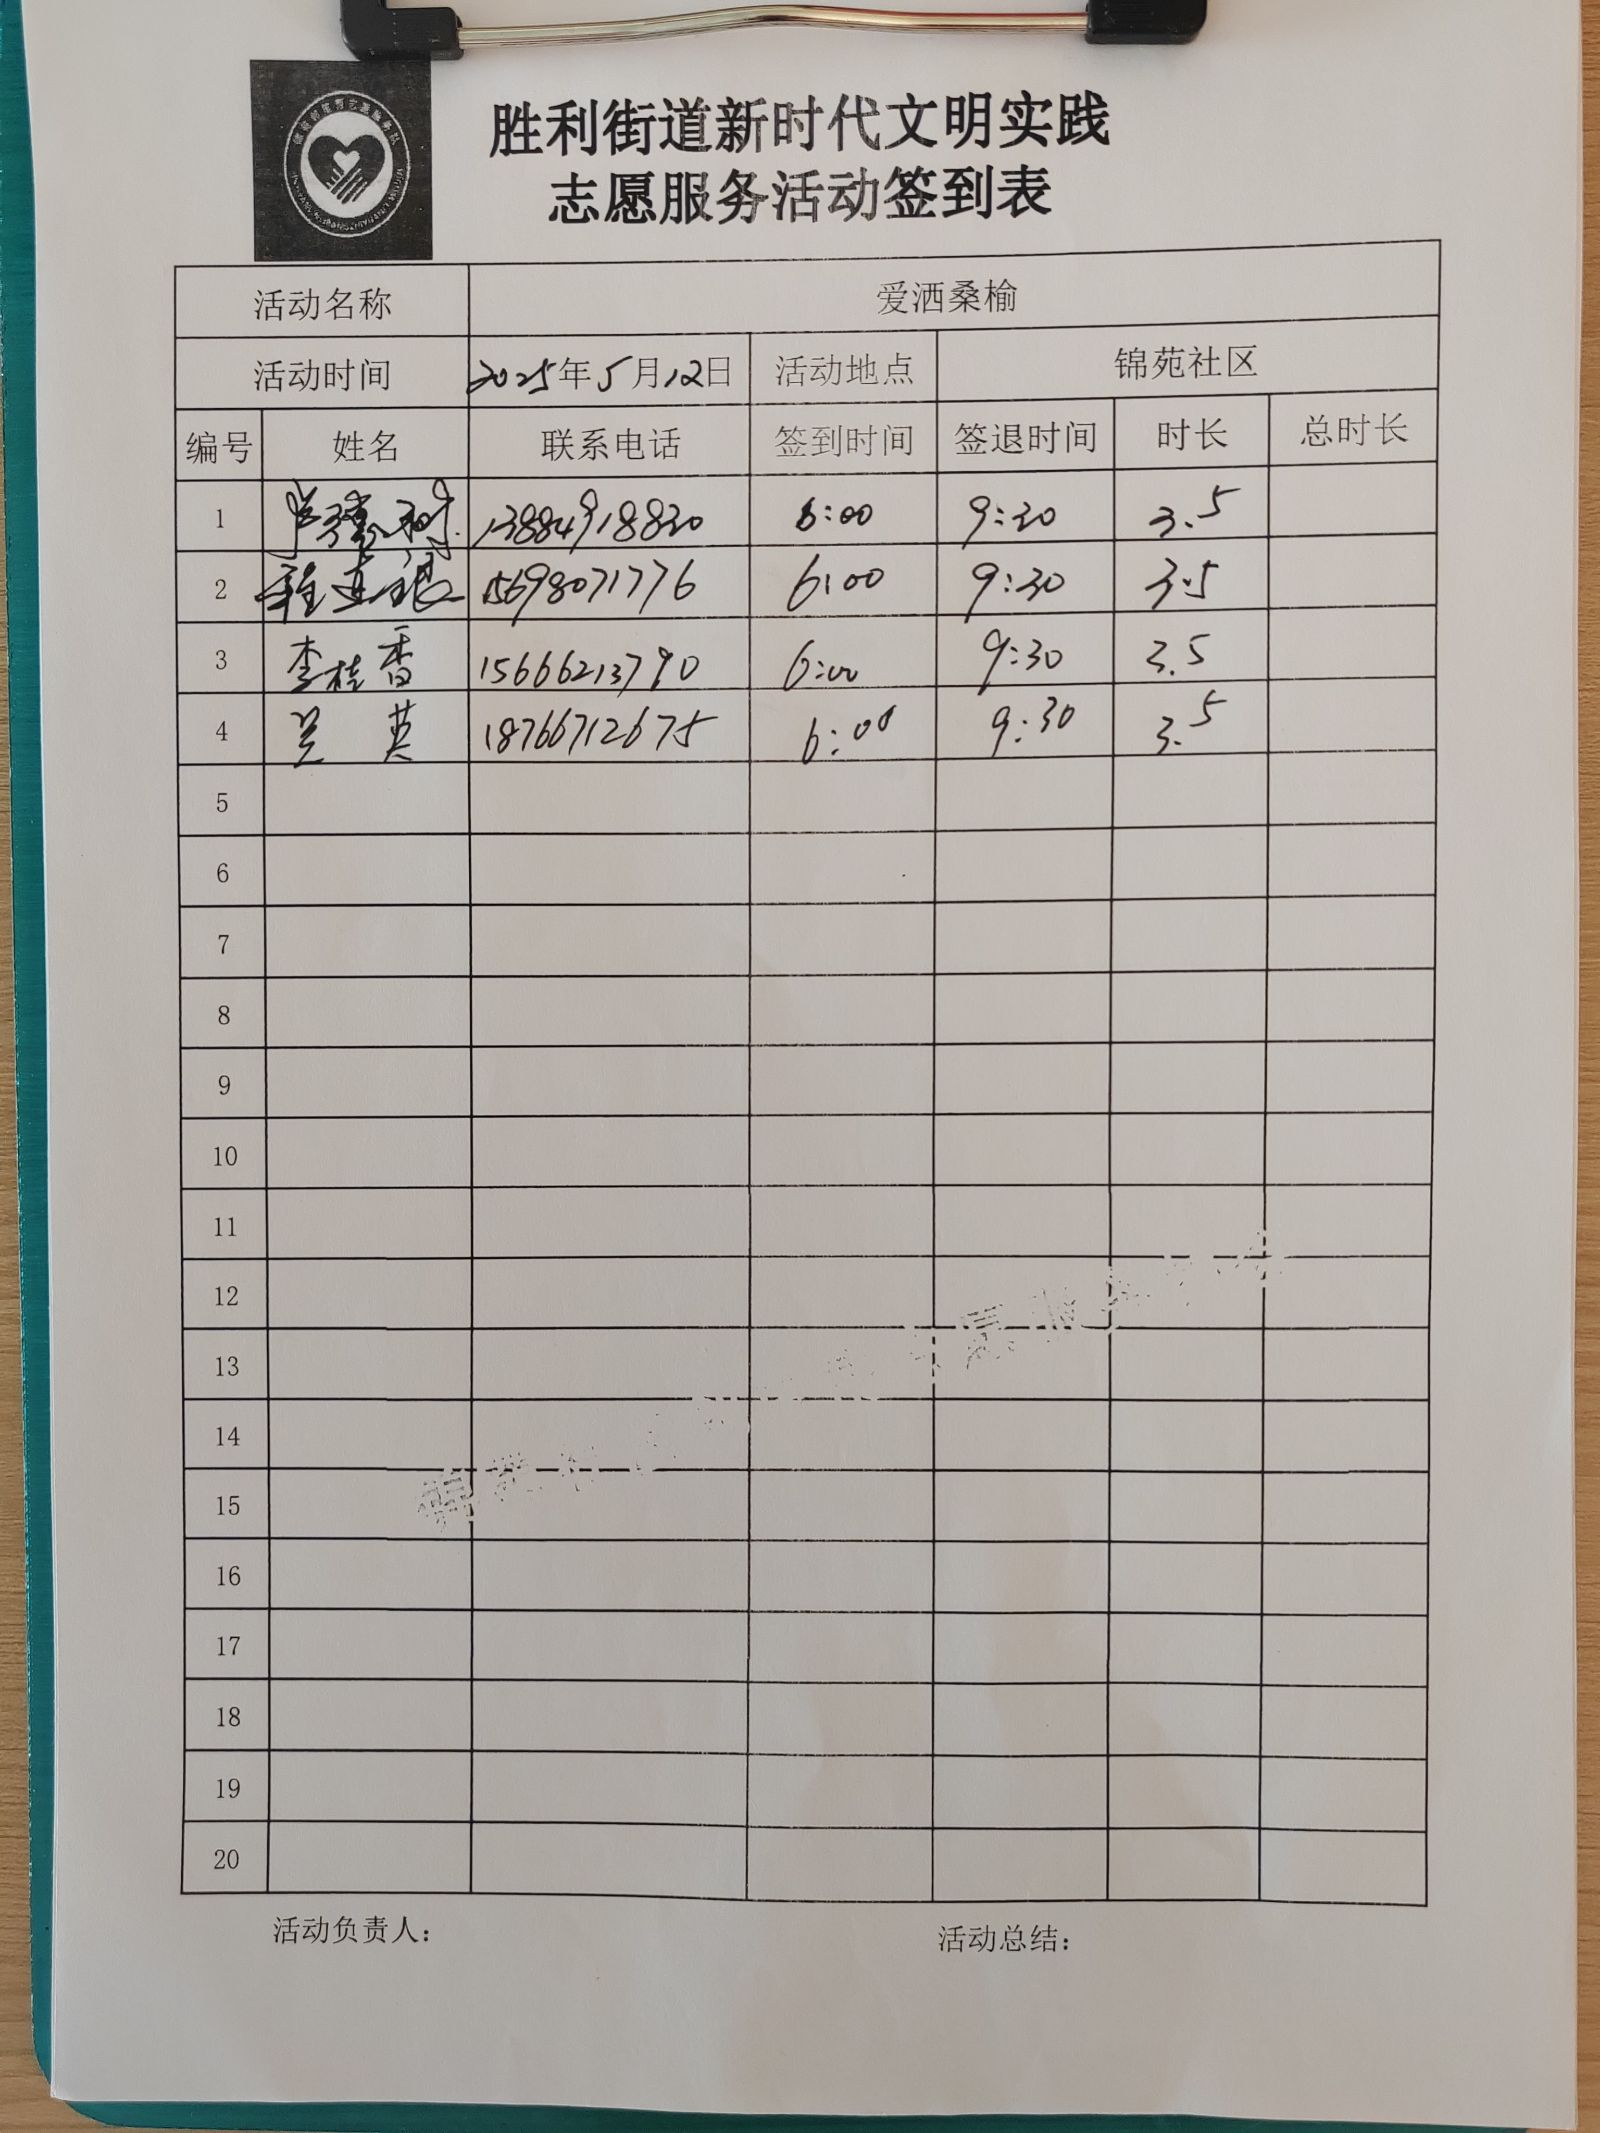 胜利街道新时代文明实践
志愿服务活动签到表
活动名称 爱洒桑榆
活动时间 2025年5月12日 活动地点 锦苑社区
编号 姓名 联系电话 签到时间 签退时间 时长 总时长
1 13884918830 6:00 9:30 3.5
2 15698071776 6:00 9:30 3.5
3 李桂香 15666213790 6:00 9:30 3.5
4 吴英 18766712675 6:00 9:30 3.5
5
6
7
8
9
10
11
12
13
14
15
16
17
18
19
20
活动负责人： 活动总结：